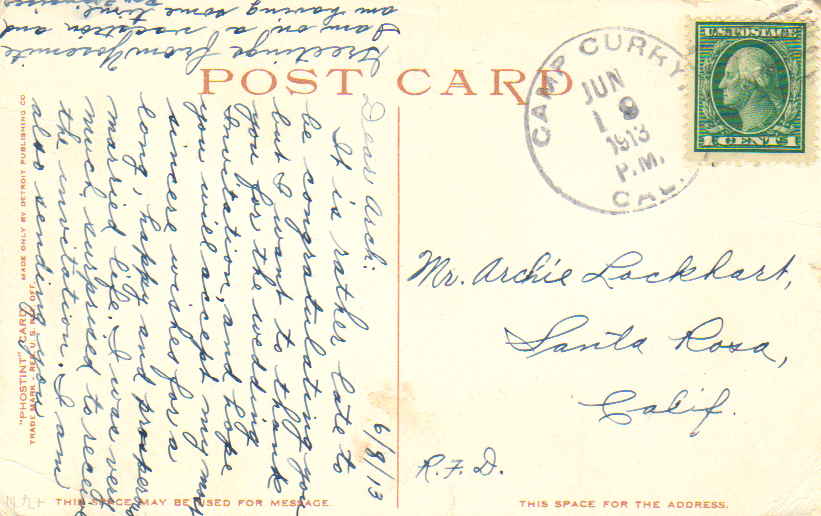 POST CARD
CAMP CURRY,
JUN
18
1913
P.M.
CAL.
U.S. POSTAGE
1 CENTS 1
Mr. Archie Lockhart,
Santa Rosa,
Calif.
R.F.D.
6/8/13
Dear Arch:
It is rather late to
be congratulating you
but I want to thank
you for the wedding
Invitation, and hope
you will accept my most
sincere wishes for a
long, happy and prosperous
married life. I was very
much surprised to receive
the invitation. I am
also sending you
Greetings from Yosemite
I am on a vacation and
am having some time.
"PHOSTINT" CARD
MADE ONLY BY DETROIT PUBLISHING CO.
TRADE MARK - REG. U. S. PAT. OFF.
THIS SPACE MAY BE USED FOR MESSAGE.
THIS SPACE FOR THE ADDRESS.